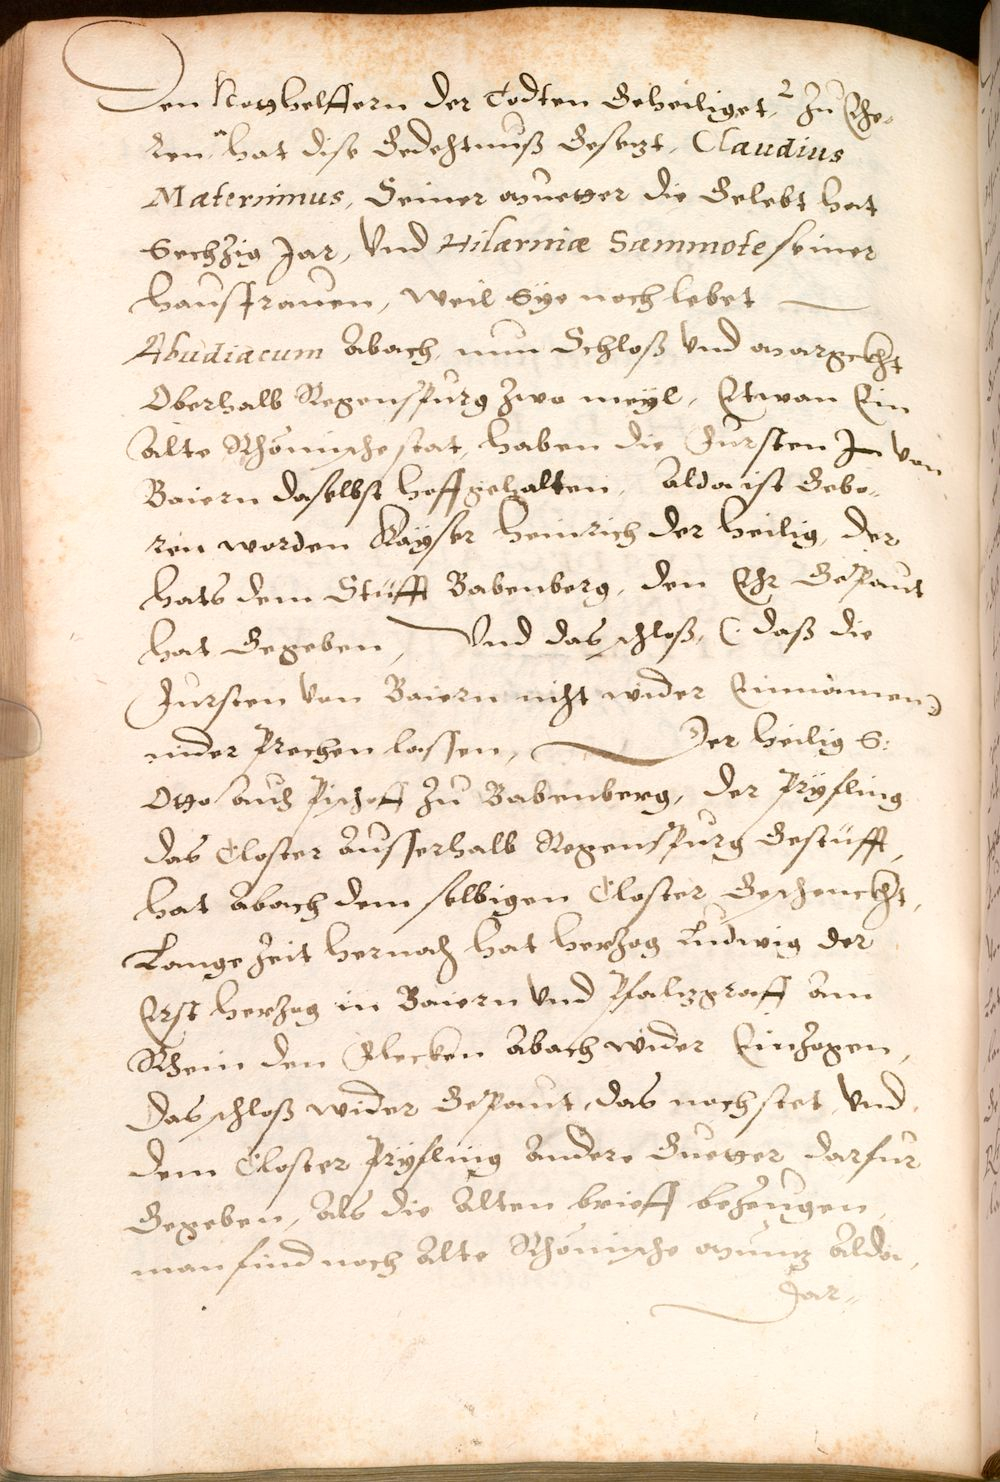 Den Notthelffern der Todten Geheiliget, 2 Zu Ehe-
ren, hat dise Gedechtnuß Gesetzt, Claudius
Materninus, Seiner muetter die Gelebt hat
Sechzig Jar, Vnd Hilarniæ Sammote seiner
haussfrauen, weil Sye noch lebet
Abudiacum Abach, nun Schloß Vnd margckht
Oberhalb Regenspurg zwo meyl, Etwan Ein
Alte Rhömische stat, haben die Fürsten In Von
Baiern daselbst hoffgehalten, Alda ist Gebo-
ren worden Kayser Heinrich der heilig, der
hats dem Stüfft Babenberg, den Ehr Gepaut
hat Gegeben, Vnd das schloß, (daß die
Fürsten Von Baiern nicht wider Einnämen)
nider Prechen lassen, Der heilig S:
Otto auch Pischoff Zu Babenberg, der Pryfling
das Closter Ausserhalb Regenspurg Gestüfft,
hat Abach dem selbigen Closter Geschenckht,
Lange Zeit hernach hat herzog Ludwig der
Erst herzog in Baiern Vnd Pfaltzgraff Am
Rhein den Flecken Abach wider Einzogen,
das schloß wider Gepaut, das noch stet, Vnd
dem Closter Pryfling Andere Guetter darfür
Gegeben, Als die Alten brieff bezeugen,
man find noch Alte Rhömische müntz Alda,
Dar-